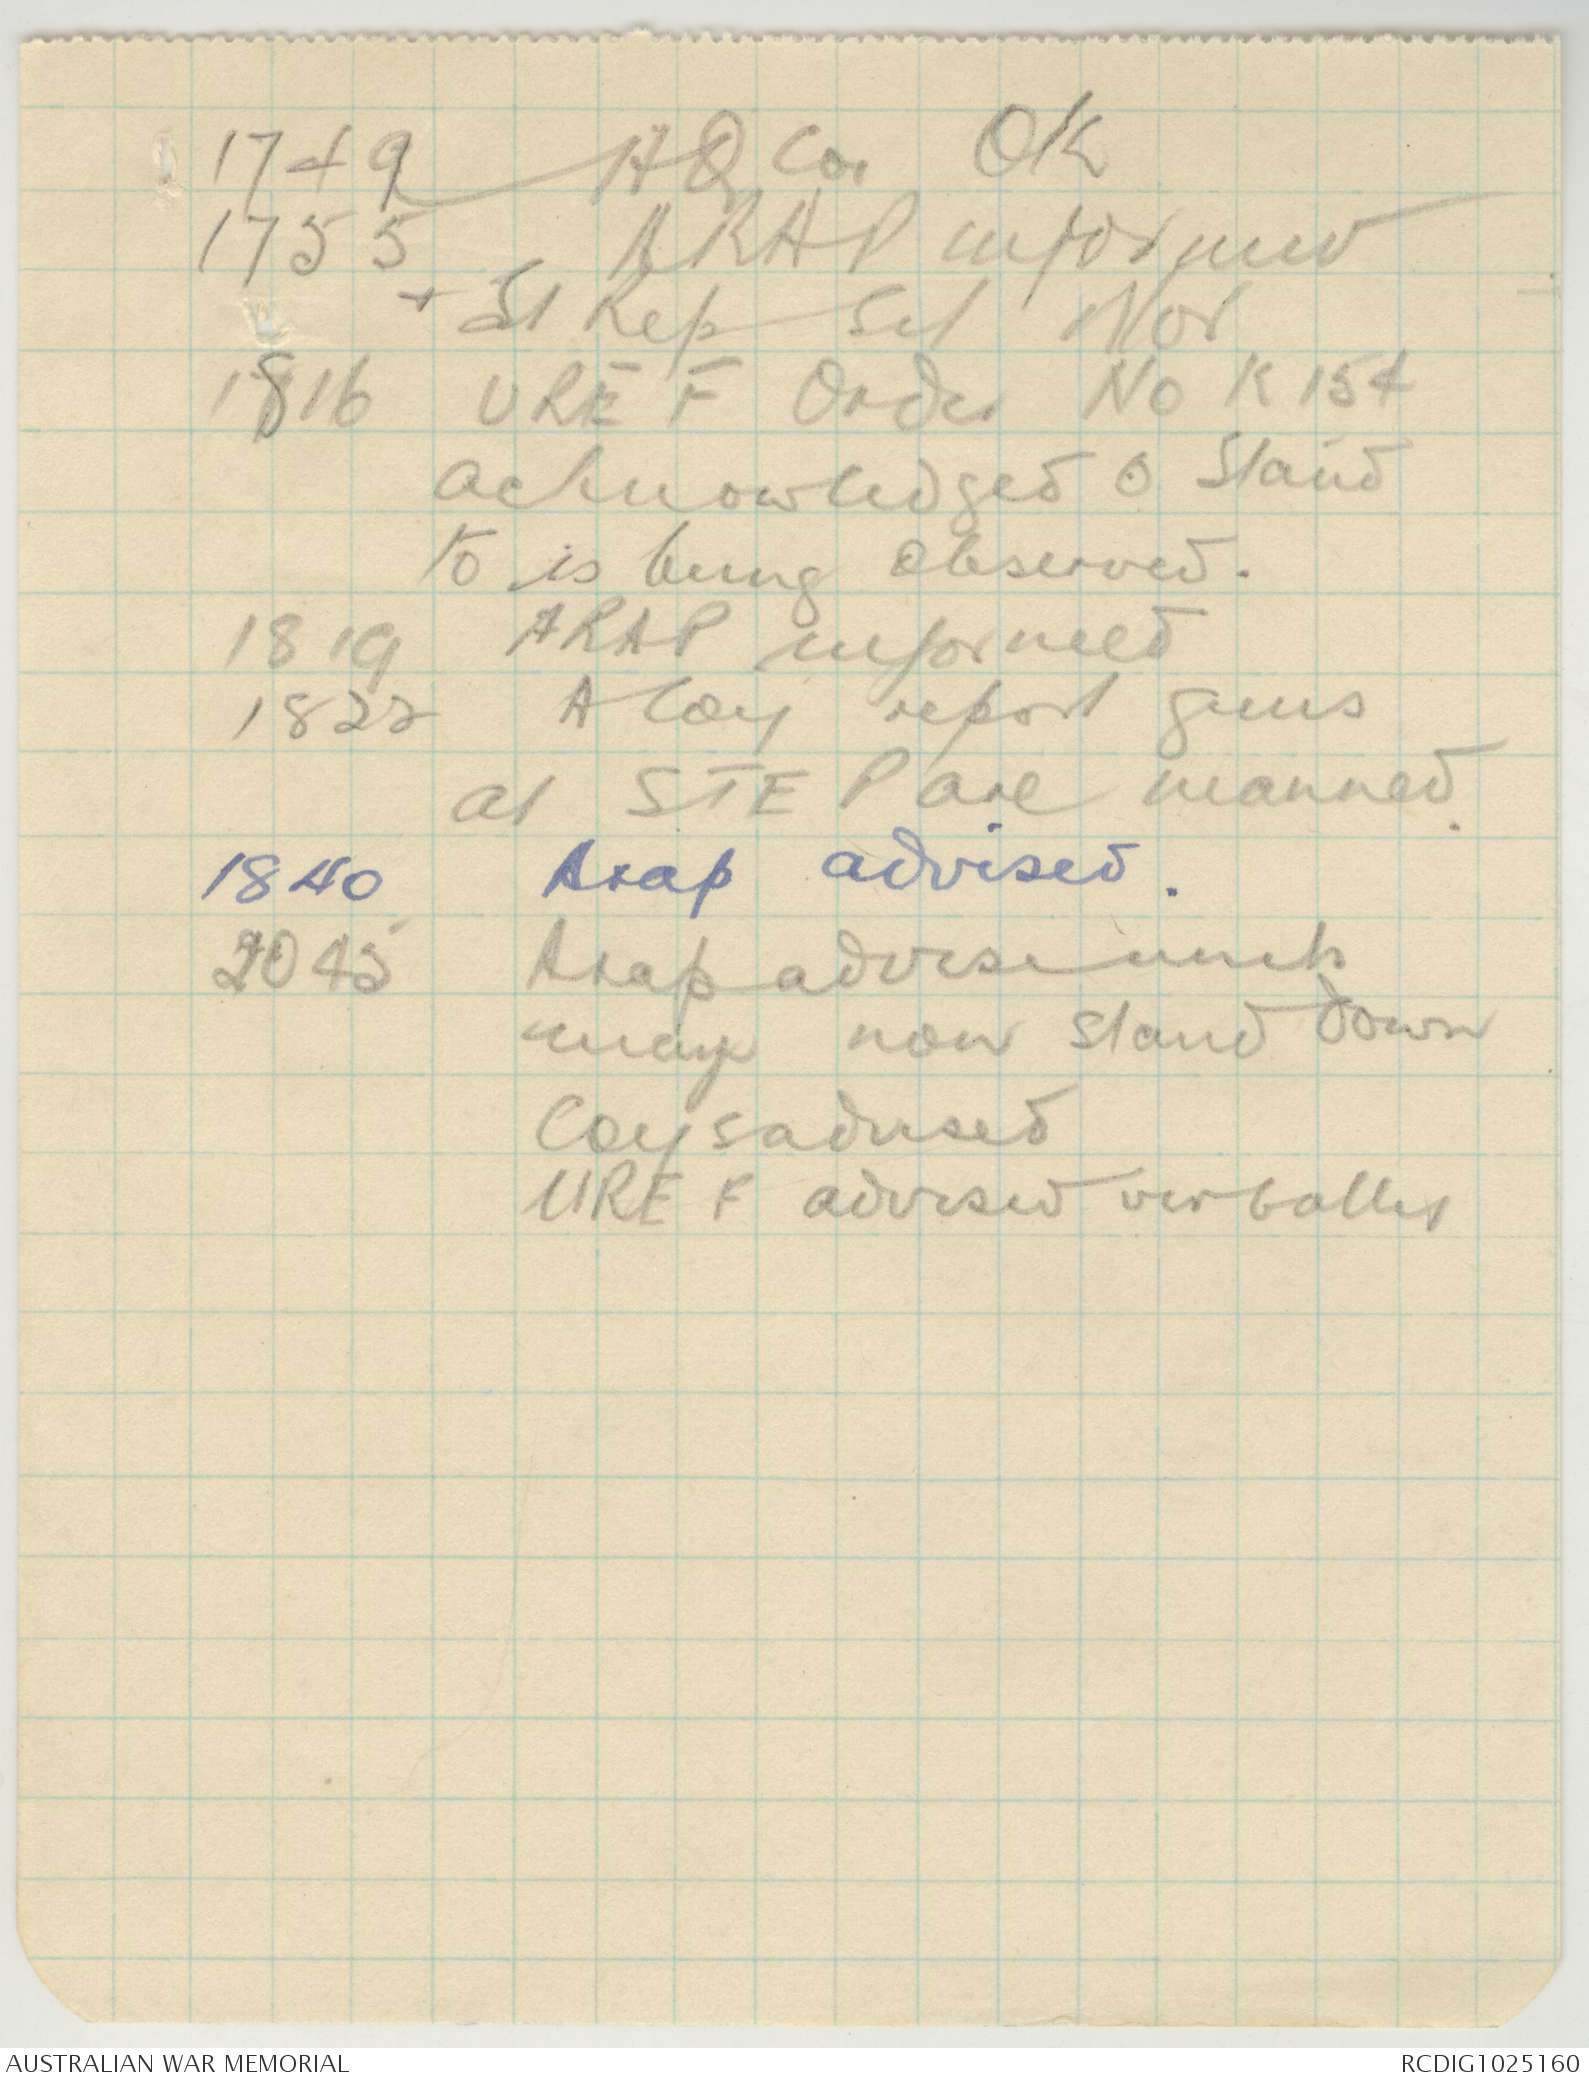 1749 HQ Coy OK
1755 ARAP informed
+ St Rep Sit Nor
1816 UREF Order No K154
acknowledged & Stand
to is being observed.
1819 ARAP informed
1822 A Coy report guns
at STEP are manned.
1840 Arap advised.
2045 Arap advise units
may now stand down
Coys advised
UREF advised verbally
AUSTRALIAN WAR MEMORIAL
RCDIG1025160